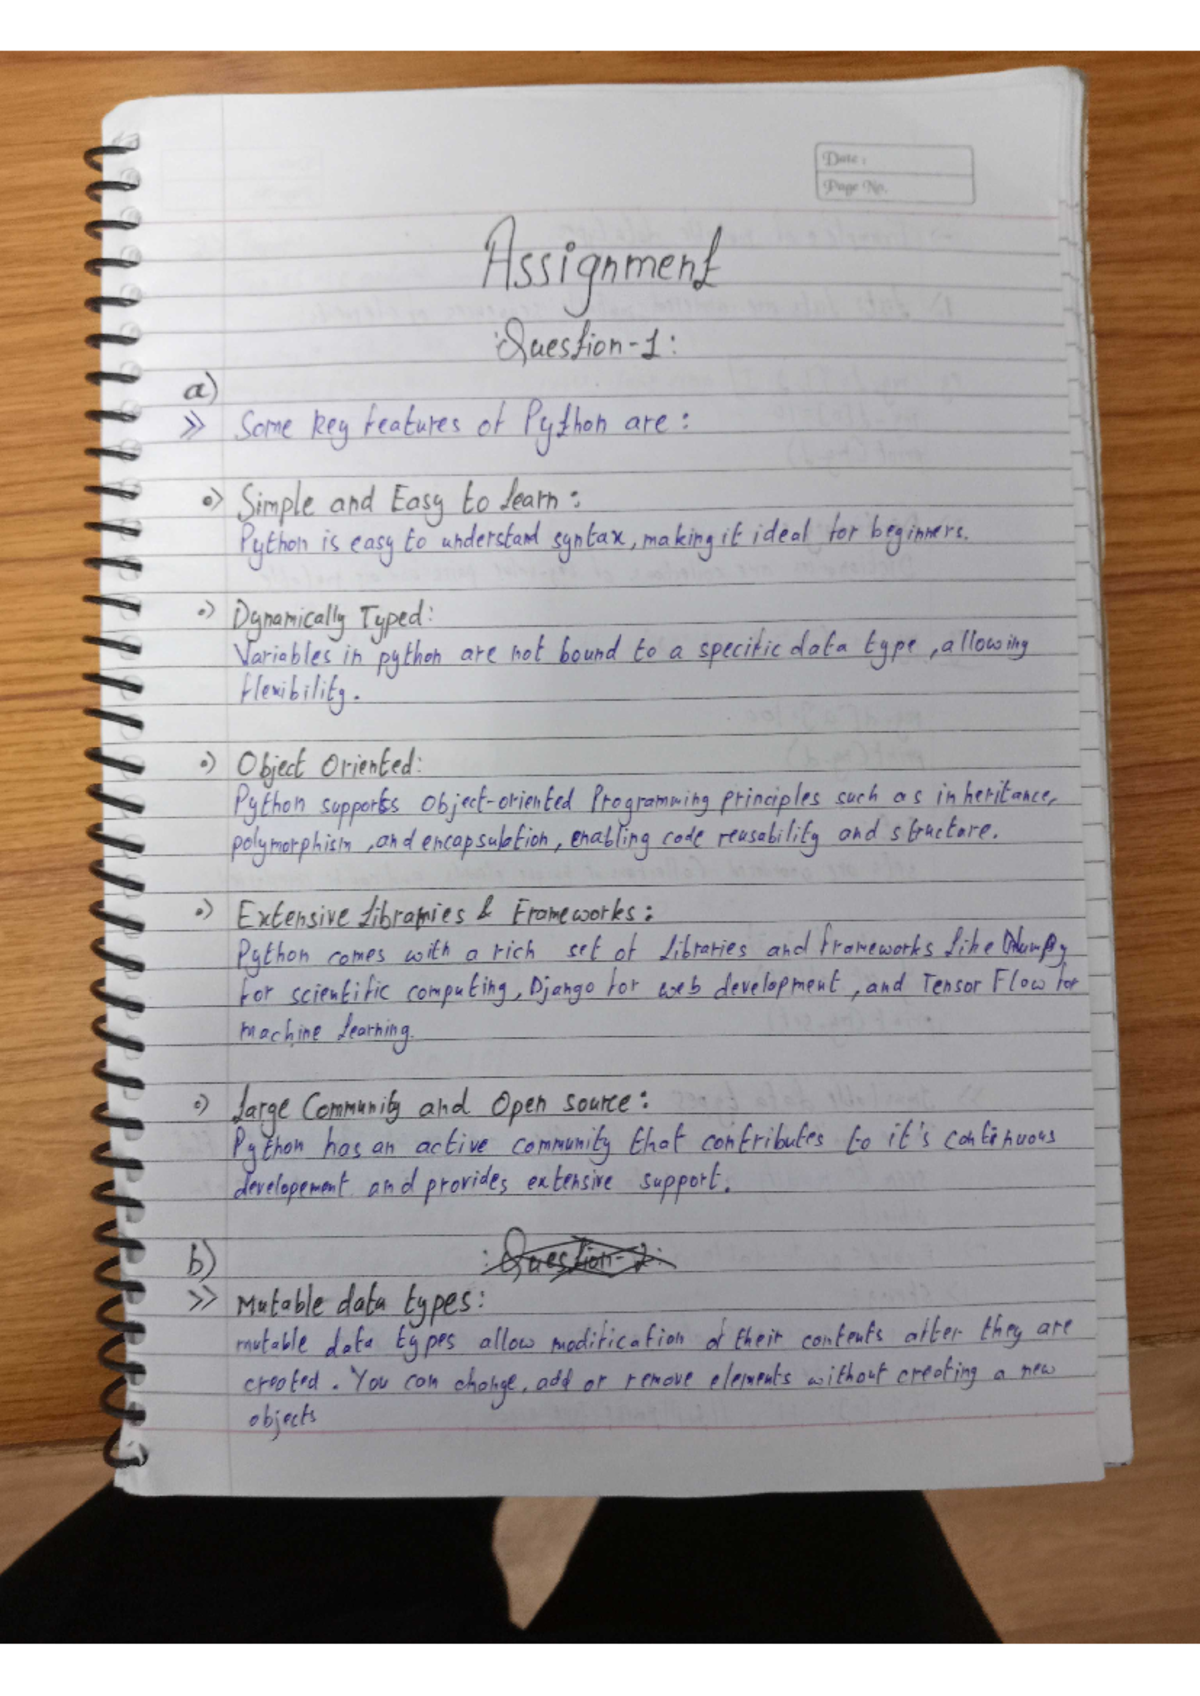 Date :
Page No.
Assignment
:Question-1:
a)
>> Some key features of Python are :
•) Simple and Easy to learn :
Python is easy to understand syntax, making it ideal for beginners.
•) Dynamically Typed:
Variables in python are not bound to a specific data type, allowing
flexibility.
•) Object Oriented:
Python supports object-oriented Programming principles such as inheritance,
polymorphism, and encapsulation, enabling code reusability and structure.
•) Extensive Libraries & Frameworks :
Python comes with a rich set of Libraries and frameworks like Numpy
for scientific computing, Django for web development, and Tensor Flow for
machine learning.
•) Large Community and Open source :
Python has an active community that contributes to it's continuous
developement and provides extensive support.
b) :Question-2:
>> Mutable data types :
mutable data types allow modification of their contents after they are
created. You can change, add or remove elements without creating a new
objects